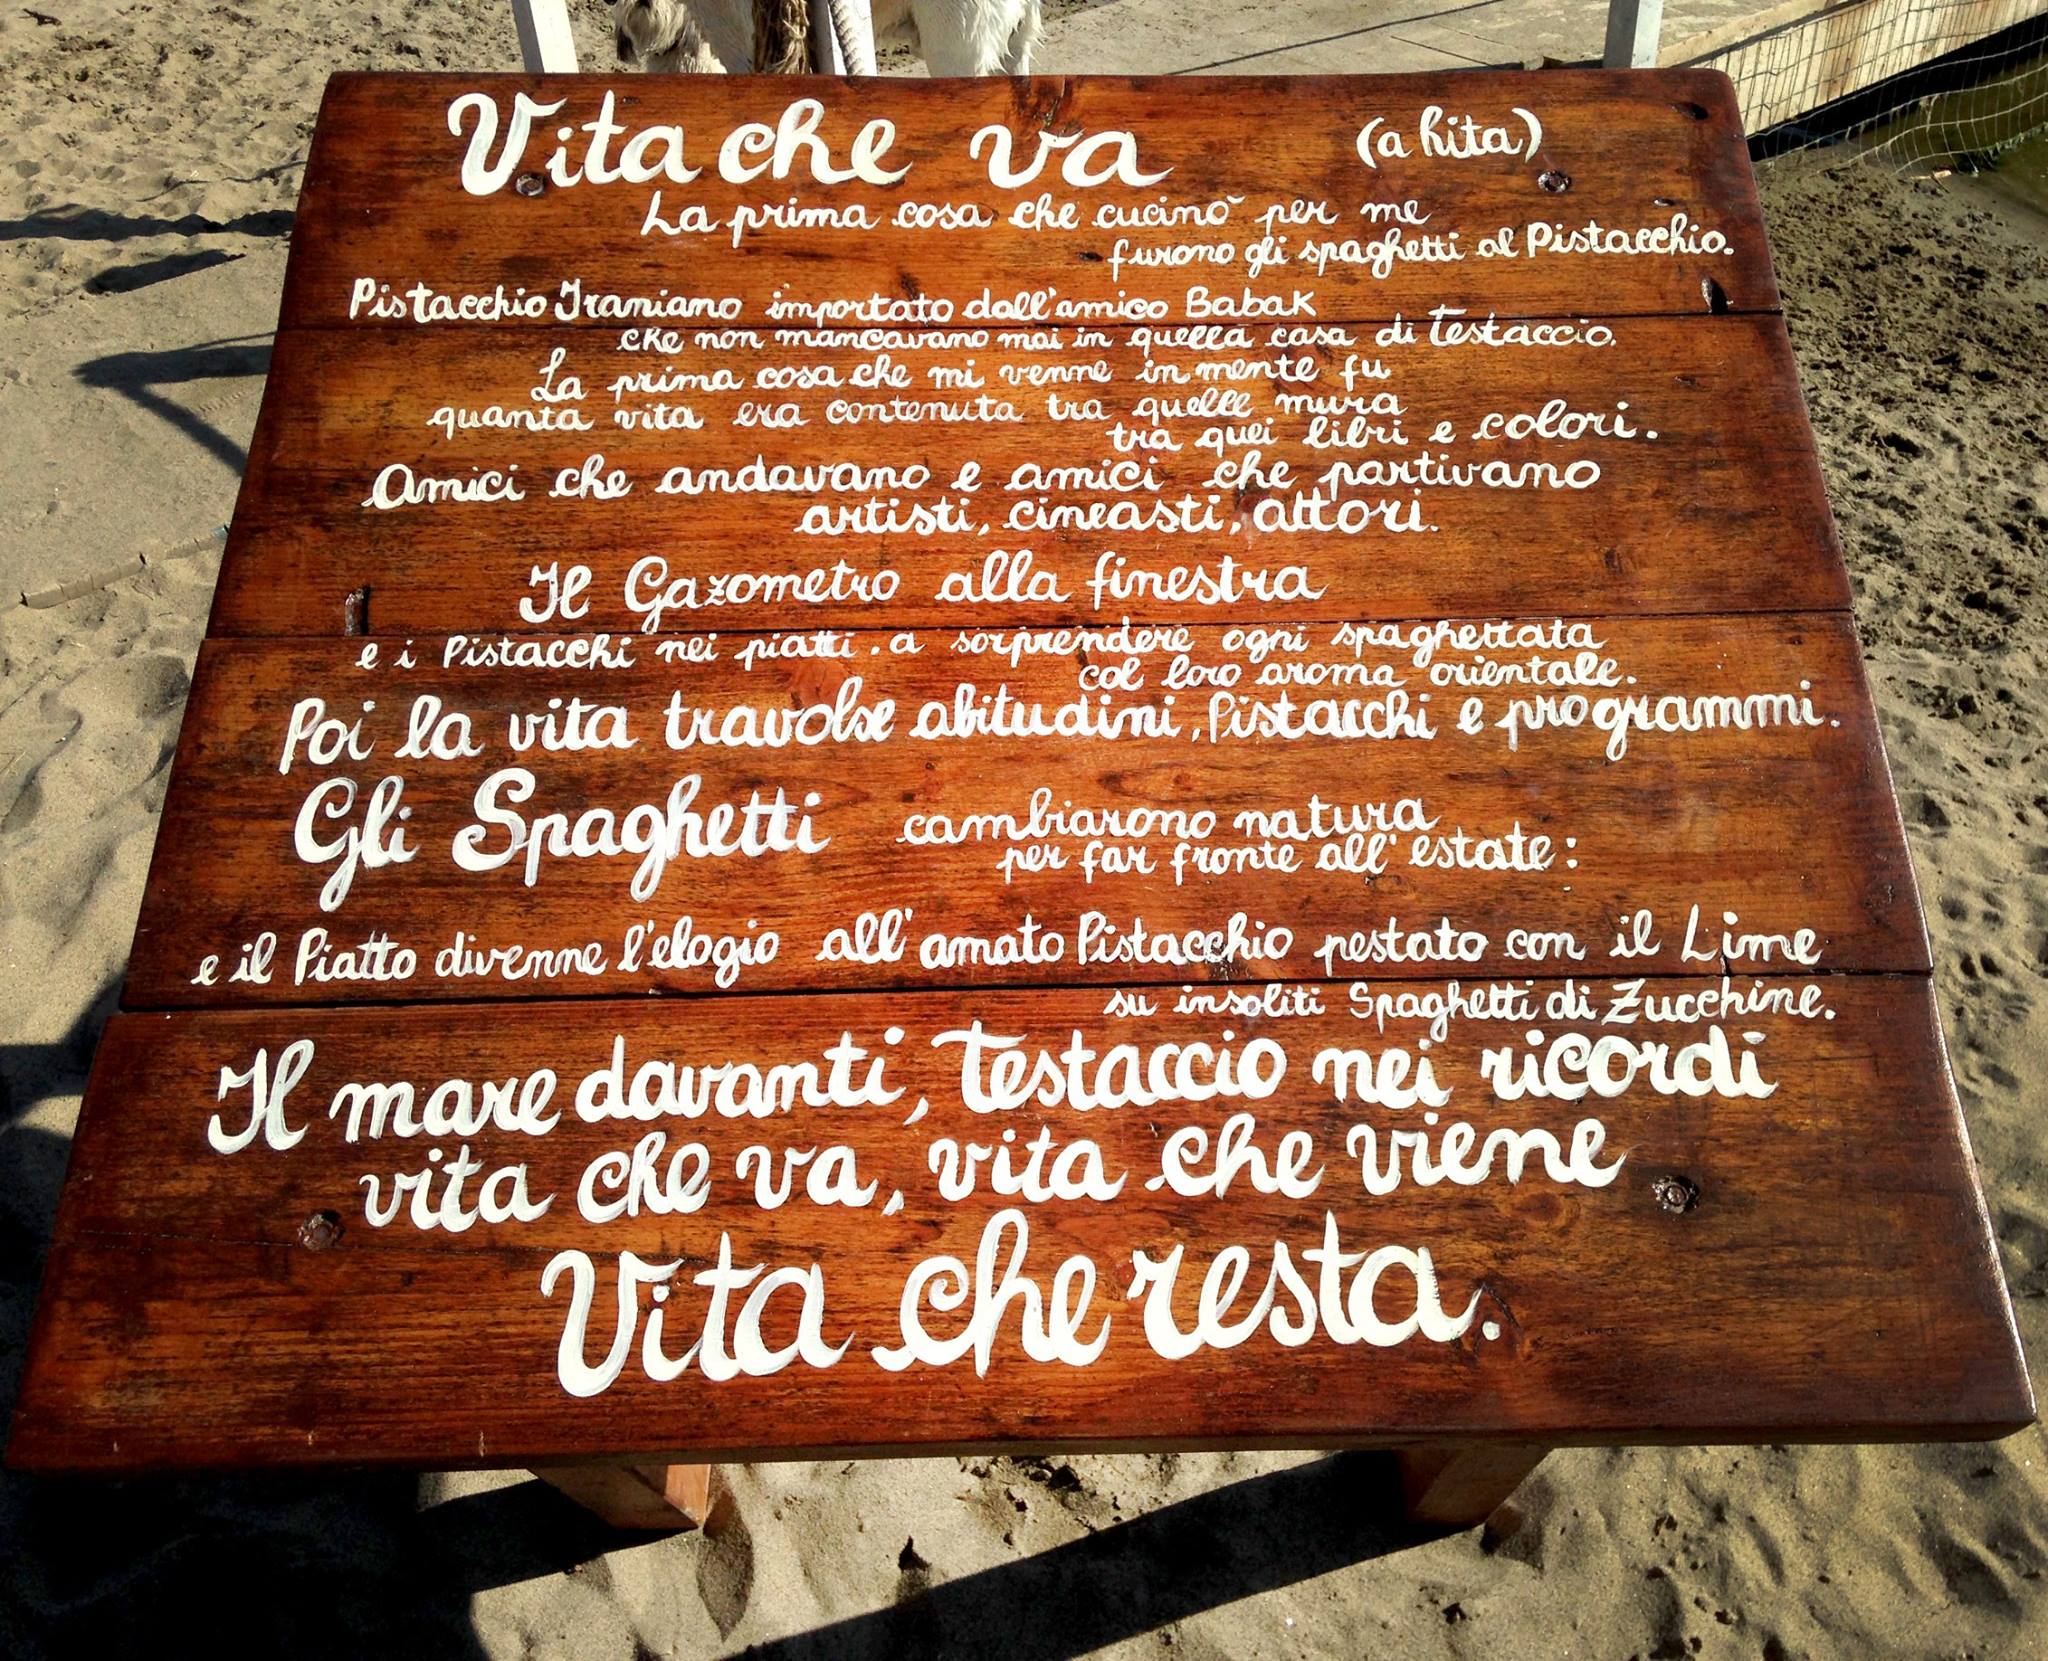 Vita che va (a hita)
La prima cosa che cucinò per me
furono gli spaghetti al Pistacchio.
Pistacchio Iraniano importato dall'amico Babak
che non mancavano mai in quella casa di Testaccio.
La prima cosa che mi venne in mente fu
quanta vita era contenuta tra quelle mura
tra quei libri e colori.
Amici che andavano e amici che partivano
artisti, cineasti, attori.
Il Gazometro alla finestra
e i Pistacchi nei piatti. a sorprendere ogni spaghettata
col loro aroma orientale.
Poi la vita travolse abitudini, Pistacchi e programmi.
Gli Spaghetti cambiarono natura
per far fronte all'estate:
e il Piatto divenne l'elogio all'amato Pistacchio pestato con il Lime
su insoliti Spaghetti di Zucchine.
Il mare davanti, Testaccio nei ricordi
vita che va, vita che viene
Vita che resta.